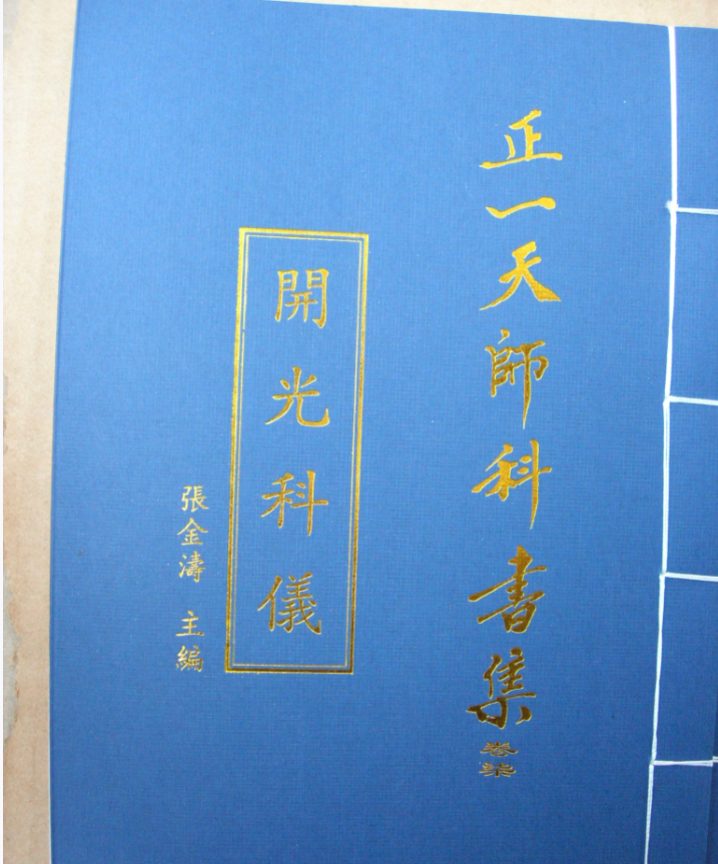 正一天師科書集 卷柒
開光科儀
張金濤 主編